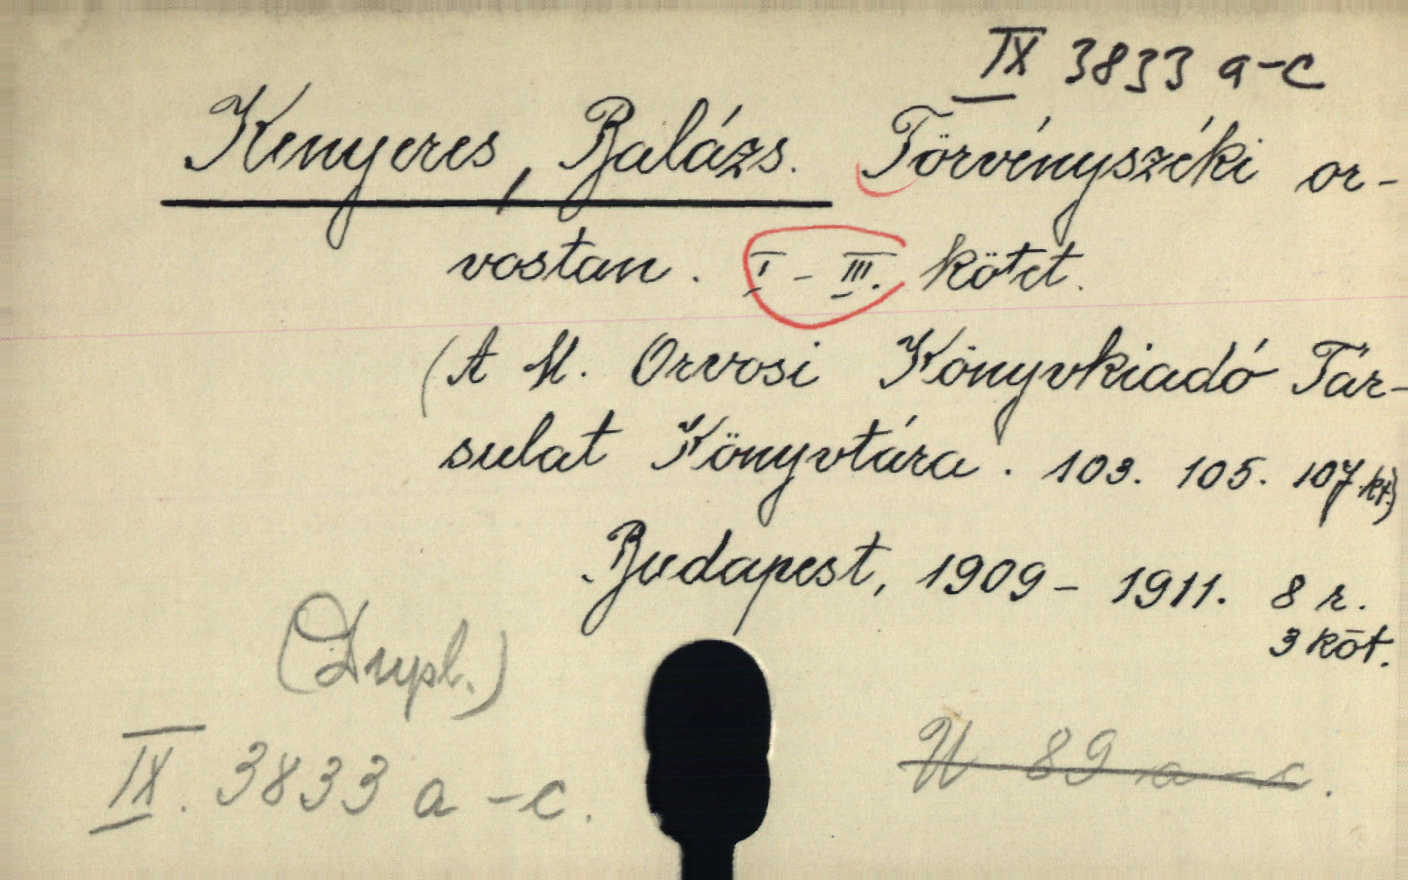 IX 3833 a-c
Kenyeres, Balázs. Törvényszéki or-
vostan. I - III. kötet.
(A M. Orvosi Könyvkiadó Tár-
sulat Könyvtára. 103. 105. 107.kt.)
Budapest, 1909 - 1911. 8 r.
3 köt.
(Dupl.)
IX. 3833 a - c.
U 89 a - c.